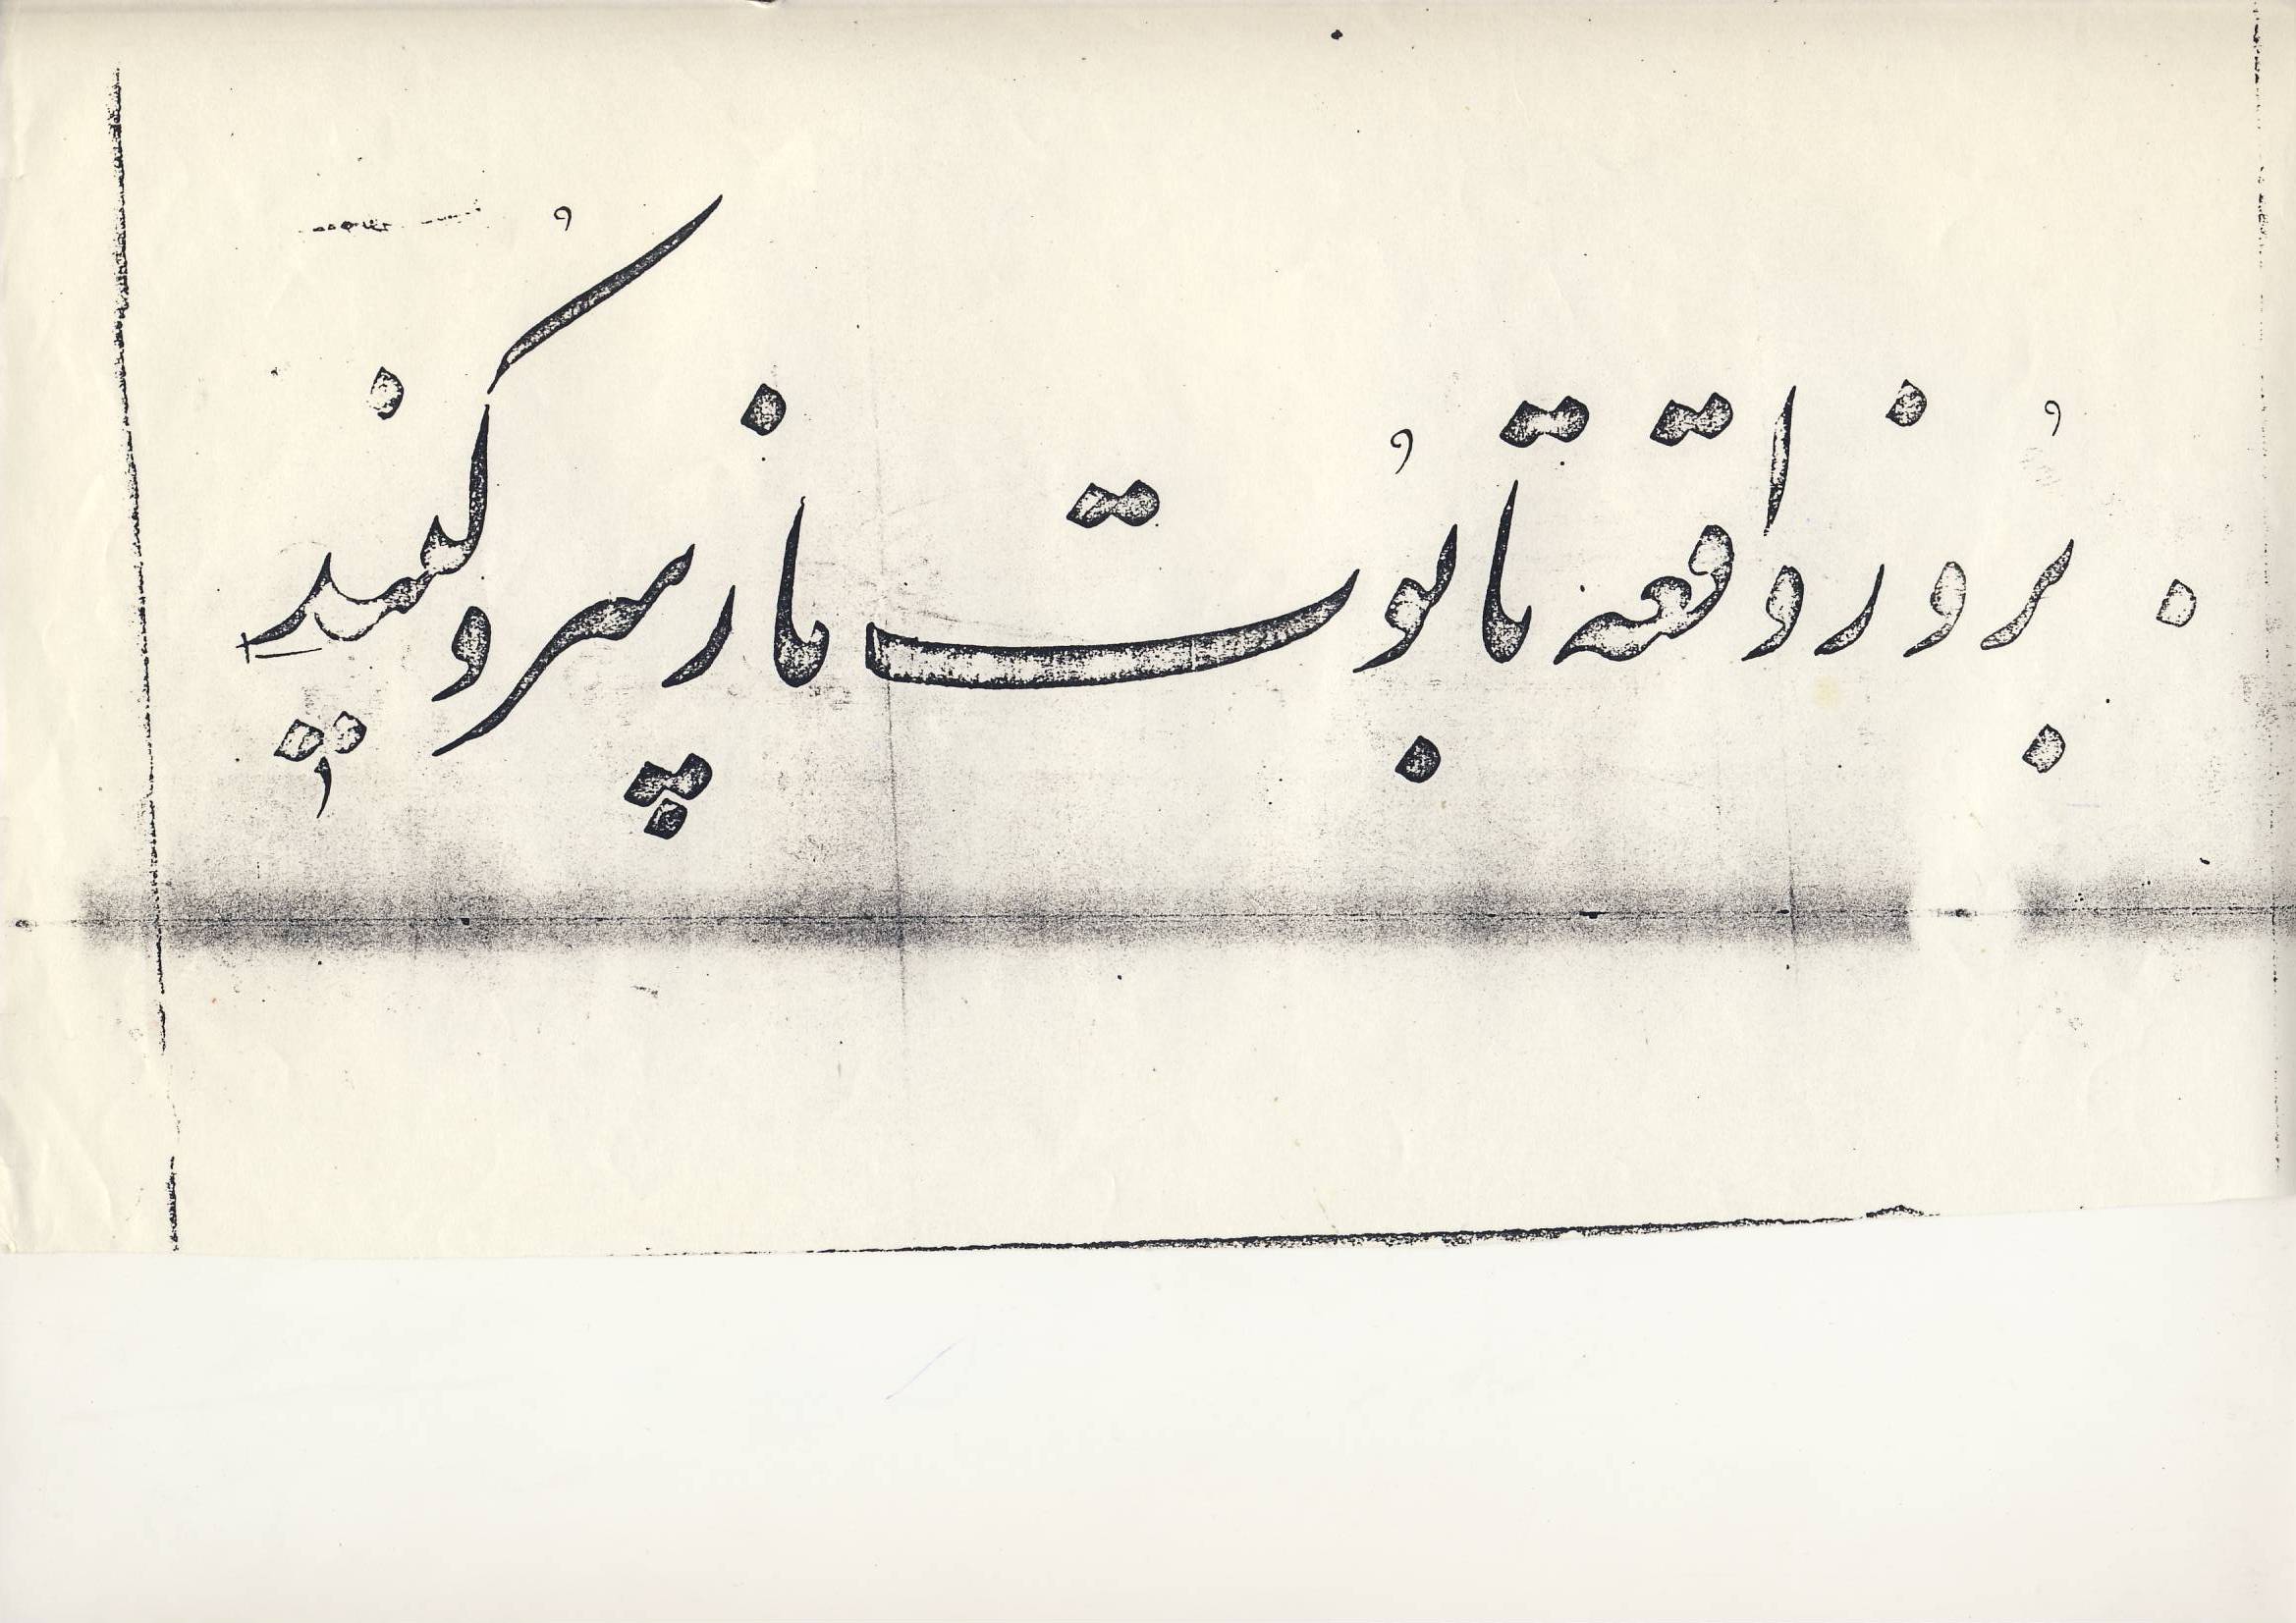 بُروز واقعه تابُوت ما ز سرو کُنید